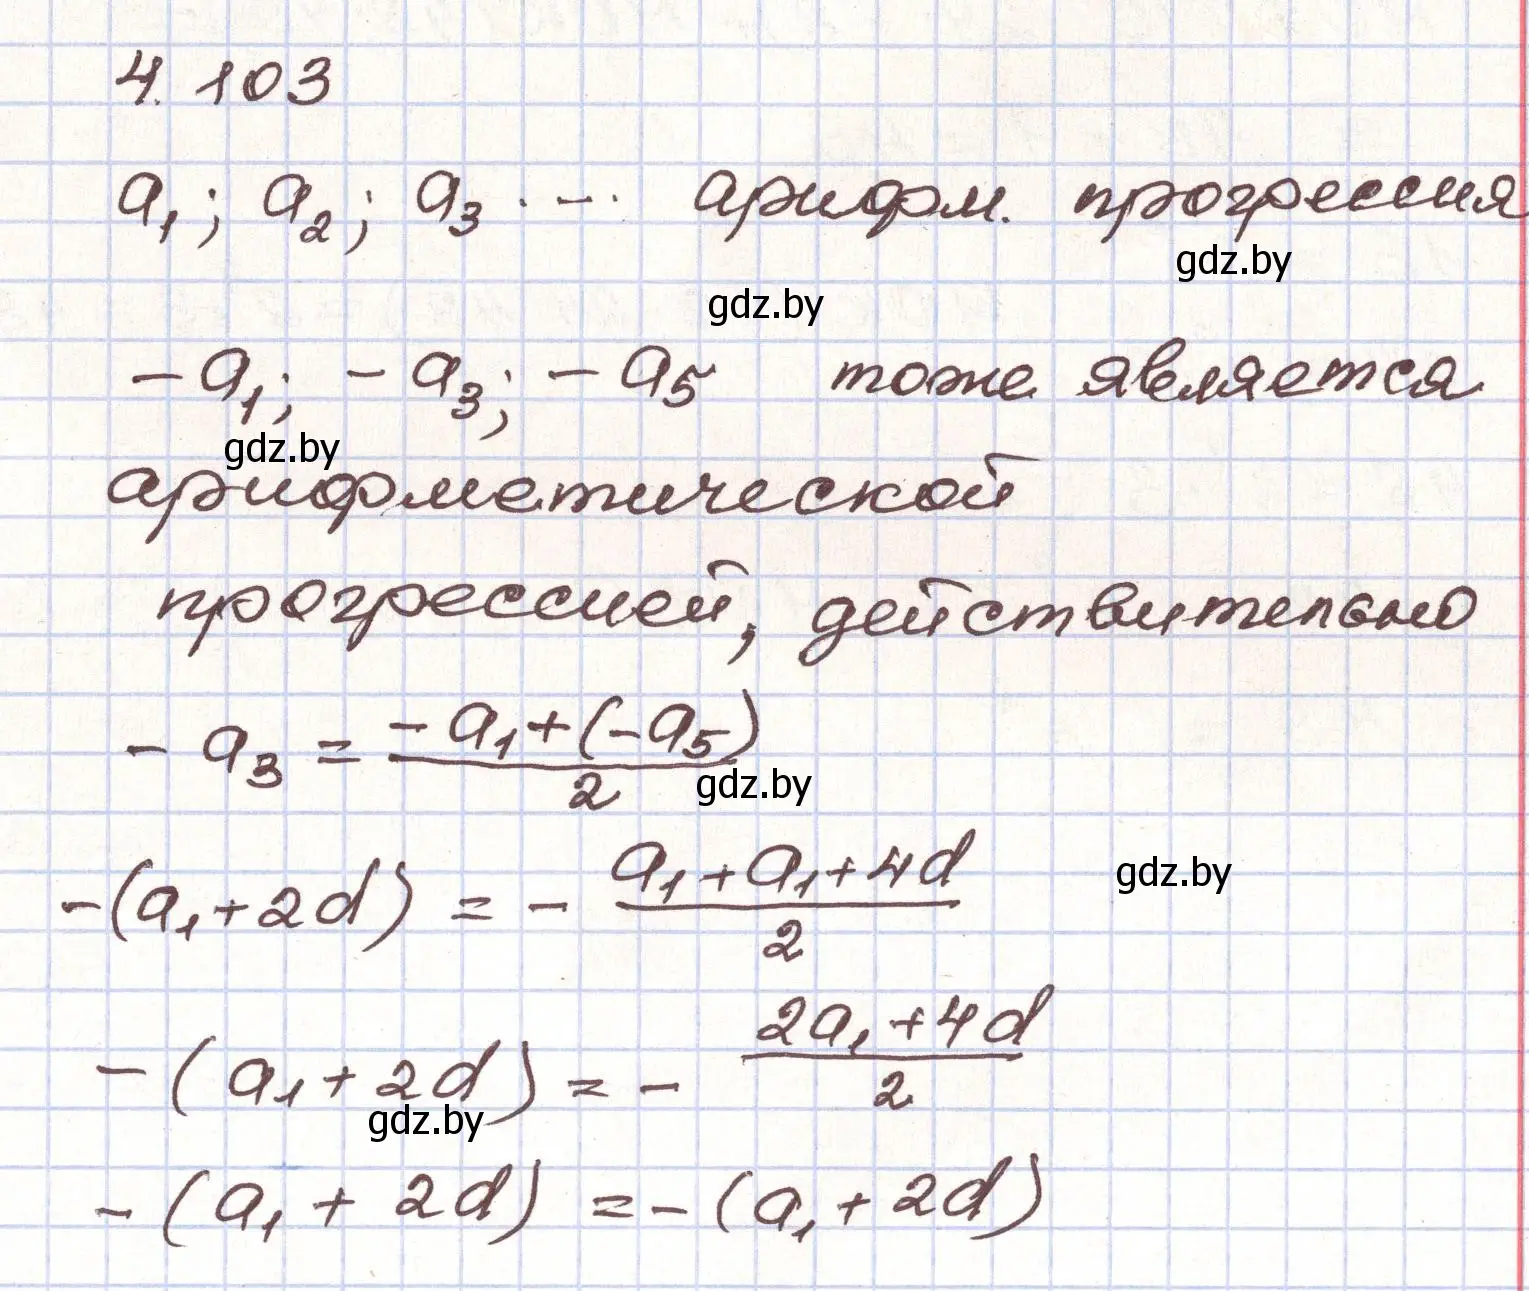 4. 103
a₁; a₂; a₃ ... арифм. прогрессия
gdz.by
gdz.by
-a₁; -a₃; -a₅ тоже является
gdz.by
арифметической
прогрессией, действительно
-a₃ = (-a₁+(-a₅))/2
gdz.by
-(a₁+2d) = - (a₁+a₁+4d)/2
gdz.by
-(a₁+2d) = - (2a₁+4d)/2
gdz.by
-(a₁+2d) = -(a₁+2d)